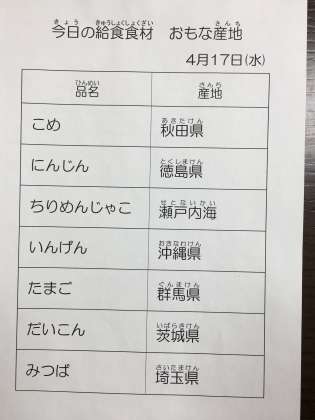 今日の給食食材 おもな産地
4月17日(水)
品名 産地
こめ 秋田県
にんじん 徳島県
ちりめんじゃこ 瀬戸内海
いんげん 沖縄県
たまご 群馬県
だいこん 茨城県
みつば 埼玉県